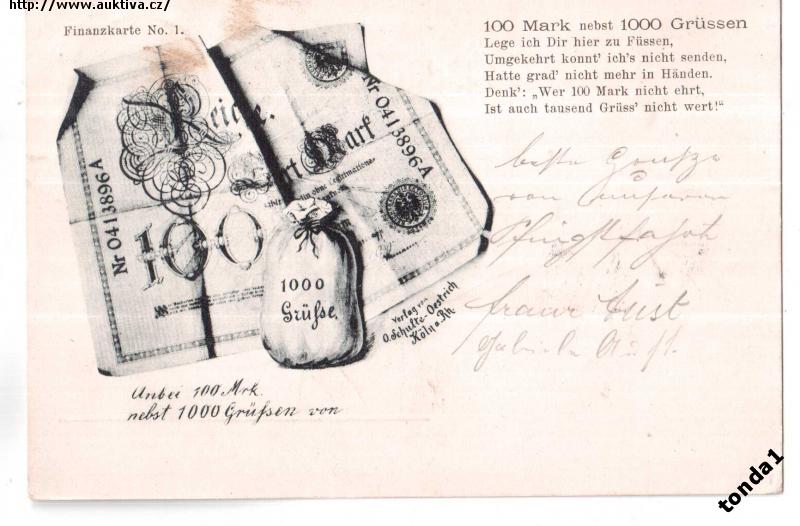 http://www.auktiva.cz/
Finanzkarte No. 1.
100 Mark nebst 1000 Grüssen
Lege ich Dir hier zu Füssen,
Umgekehrt konnt' ich's nicht senden,
Hatte grad' nicht mehr in Händen.
Denk': „Wer 100 Mark nicht ehrt,
Ist auch tausend Grüss' nicht wert!“
Nr 0413896A
Nr 0413896A
Mark
100
1000
Grüße.
Verlag von
O. Schulte-Oestrich
Köln a. Rh.
Anbei 100 Mrk.
nebst 1000 Grüßen von
beste Grüße
von unserer
Pfingstfahrt
tonda1